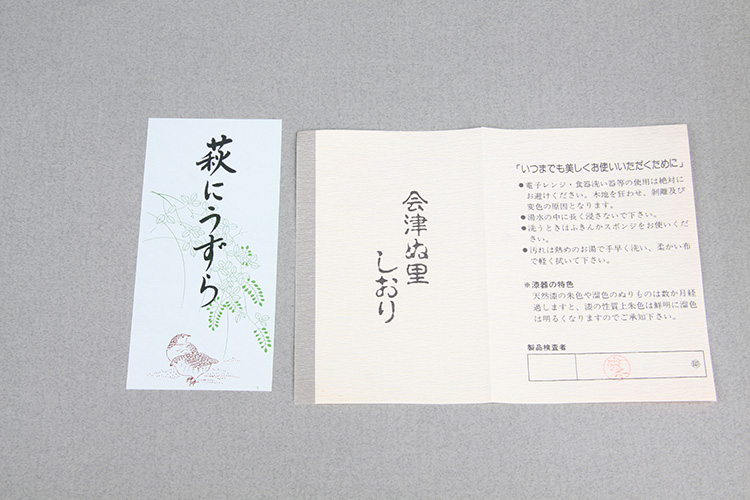 萩にうずら
会津ぬ里
しおり
「いつまでも美しくお使いいただくために」
●電子レンジ・食器洗い器等の使用は絶対に
お避けください。木地を狂わせ、剥離及び
変色の原因となります。
●湯水の中に長く浸さないで下さい。
●洗うときはふきんかスポンジをお使いくだ
さい。
●汚れは熱めのお湯で手早く洗い、柔かい布
で軽く拭いて下さい。
※漆器の特色
天然漆の朱色や溜色のぬりものは数か月経
過しますと、漆の性質上朱色は鮮明に溜色
は明るくなりますのでご承知下さい。
製品検査者
㊞